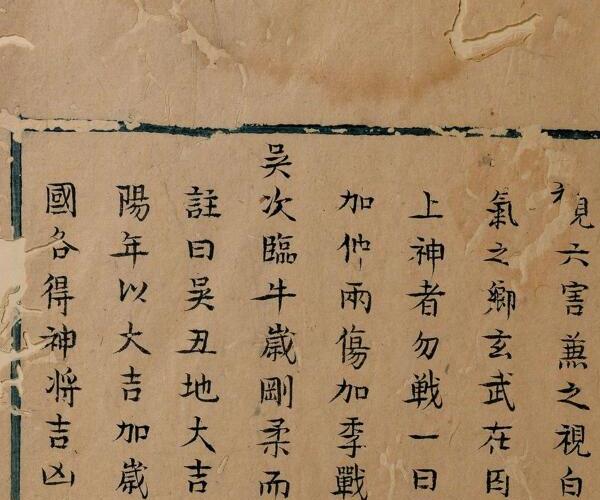 視六害兼之視白
氣之鄉玄武在囚
上神者勿戰一曰
加仲兩傷加季戰
吴次臨牛歲剛柔而
註曰吴丑地大吉
陽年以大吉加歲
國各得神將吉凶